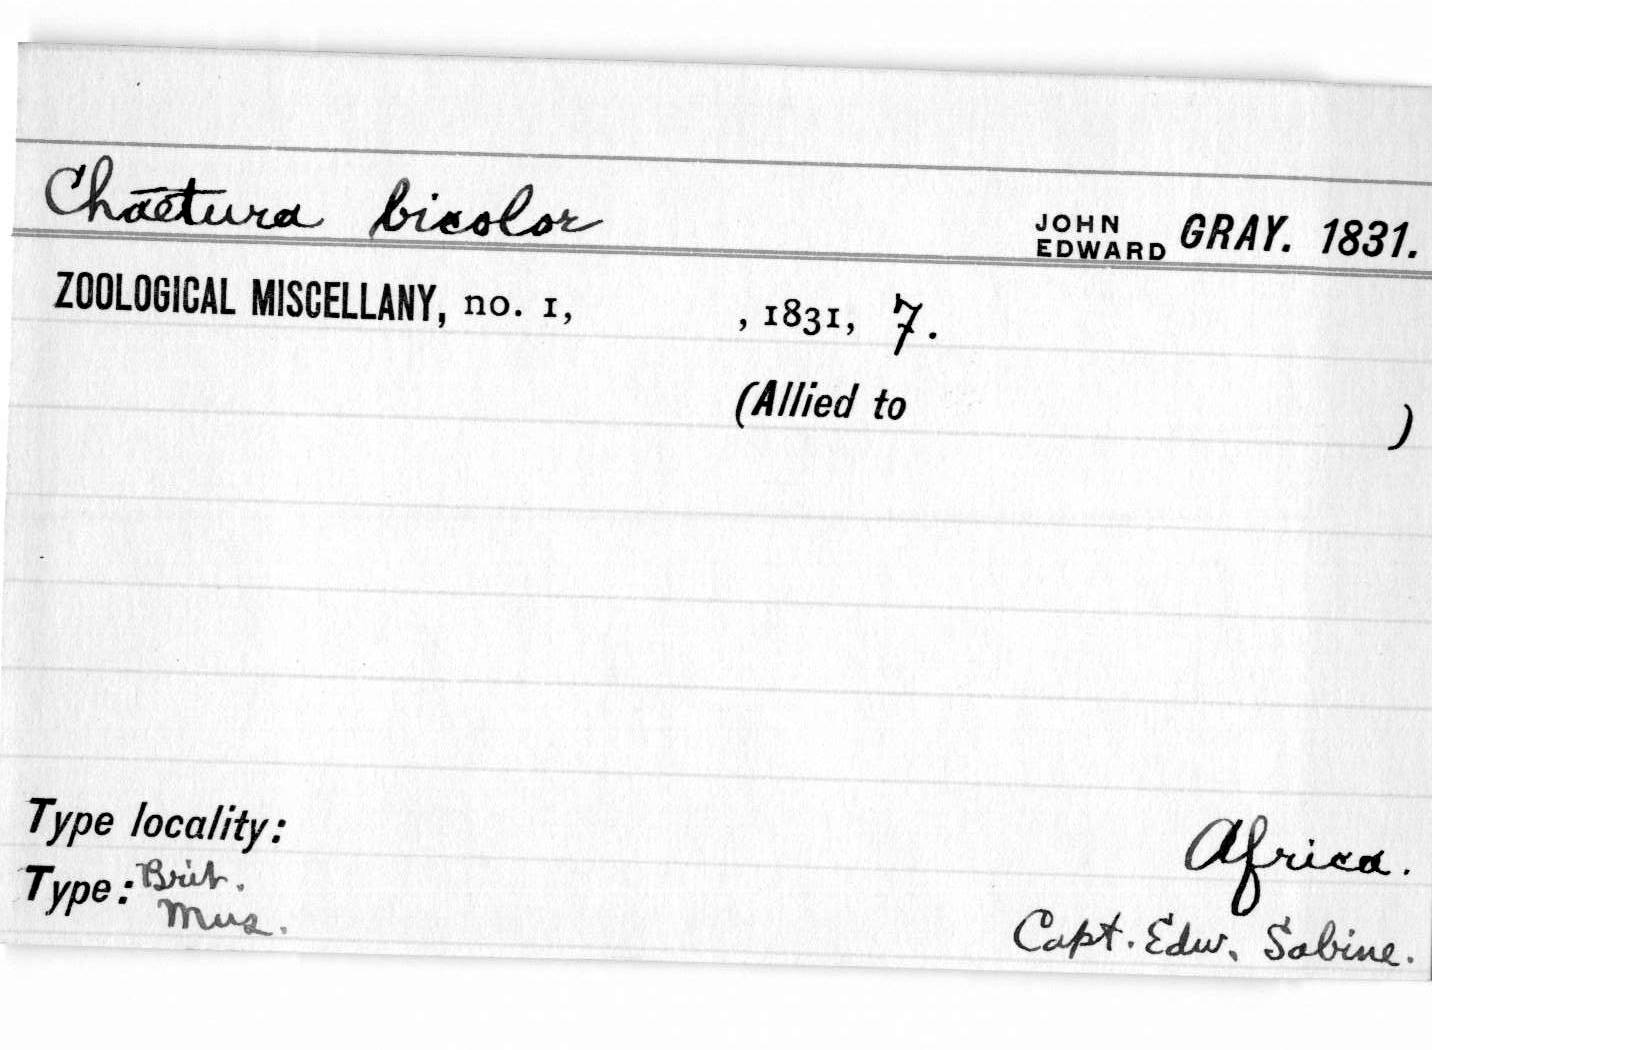 Chaetura bicolor JOHN EDWARD GRAY. 1831.
ZOOLOGICAL MISCELLANY, no. 1, , 1831, 7.
(Allied to )
Type locality: Africa.
Type: Brit. Mus. Capt. Edw. Sabine.